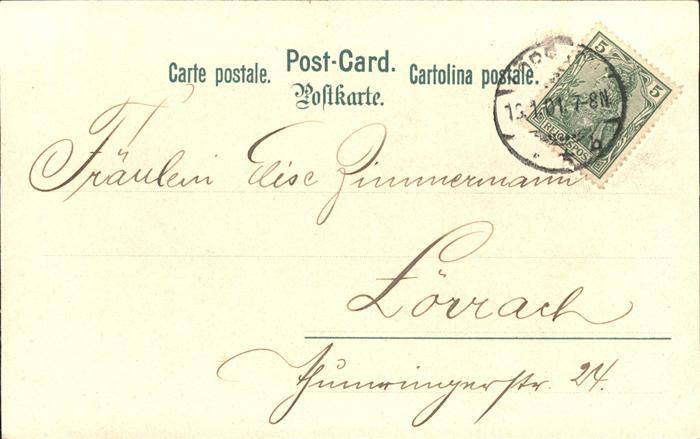 Post-Card.
Carte postale. Cartolina postale.
Postkarte.
5 5
REICHSPOST
1.01.7-8N
Fräulein Elise Zimmermann
Lörrach
Thumringerstr. 24.